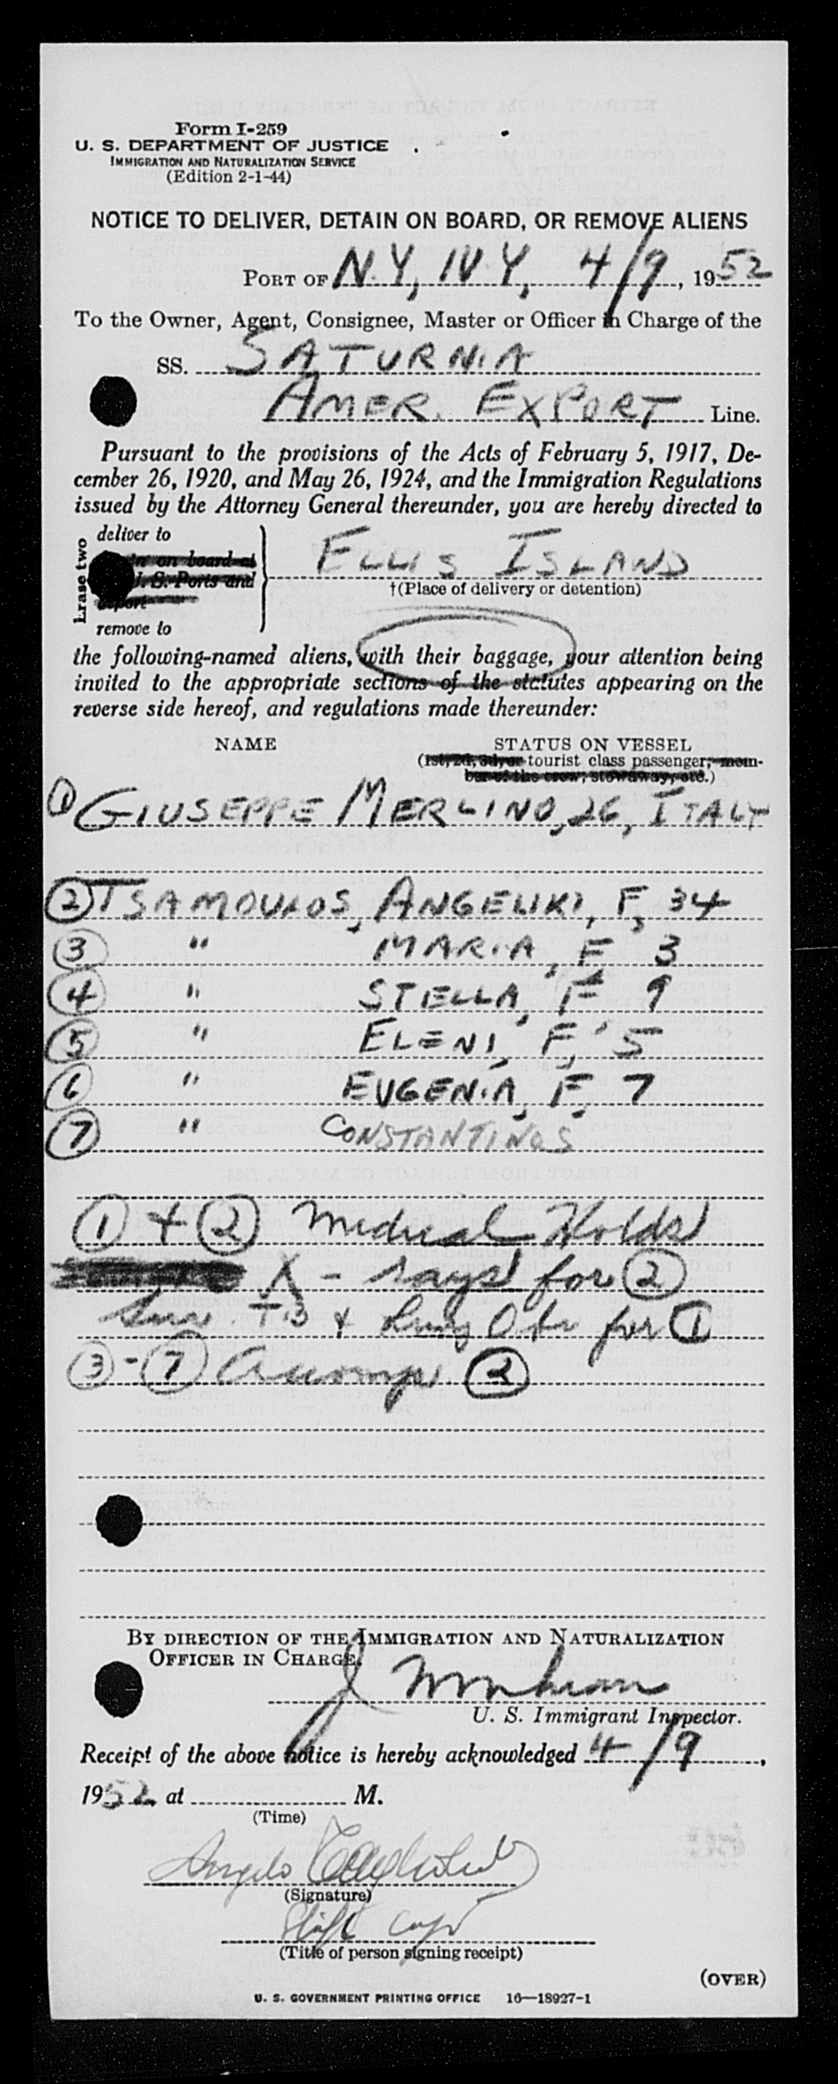 Form I-259
U. S. DEPARTMENT OF JUSTICE
IMMIGRATION AND NATURALIZATION SERVICE
(Edition 2-1-44)
NOTICE TO DELIVER, DETAIN ON BOARD, OR REMOVE ALIENS
PORT OF N.Y, N.Y, 4/9, 1952
To the Owner, Agent, Consignee, Master or Officer in Charge of the
SS. SATURNIA
AMER. EXPORT Line.
Pursuant to the provisions of the Acts of February 5, 1917, De-
cember 26, 1920, and May 26, 1924, and the Immigration Regulations
issued by the Attorney General thereunder, you are hereby directed to
Erase two
deliver to
on board at
U. S. Ports and
export
remove to
ELLIS ISLAND
†(Place of delivery or detention)
the following-named aliens, with their baggage, your attention being
invited to the appropriate sections of the statutes appearing on the
reverse side hereof, and regulations made thereunder:
NAME STATUS ON VESSEL
(1st, 2d, 3d, or tourist class passenger; mem-
ber of the crew; stowaway, etc.)
① GIUSEPPE MERLINO, 26, ITALY
② TSAMOUKOS, ANGELIKI, F, 34
③ " MARIA, F 3
④ " STELLA, F 9
⑤ " ELENI, F, 5
⑥ " EUGENIA, F, 7
⑦ " CONSTANTINOS
① + ② Medical Holds
X - rays for ②
TB + Lung for ①
③ - ⑦ Accomp. ②
BY DIRECTION OF THE IMMIGRATION AND NATURALIZATION
OFFICER IN CHARGE.
J
U. S. Immigrant Inspector.
Receipt of the above notice is hereby acknowledged 4/9,
1952 at M.
(Time)
Angelo
(Signature)
(Title of person signing receipt)
(OVER)
U. S. GOVERNMENT PRINTING OFFICE 16—18927-1